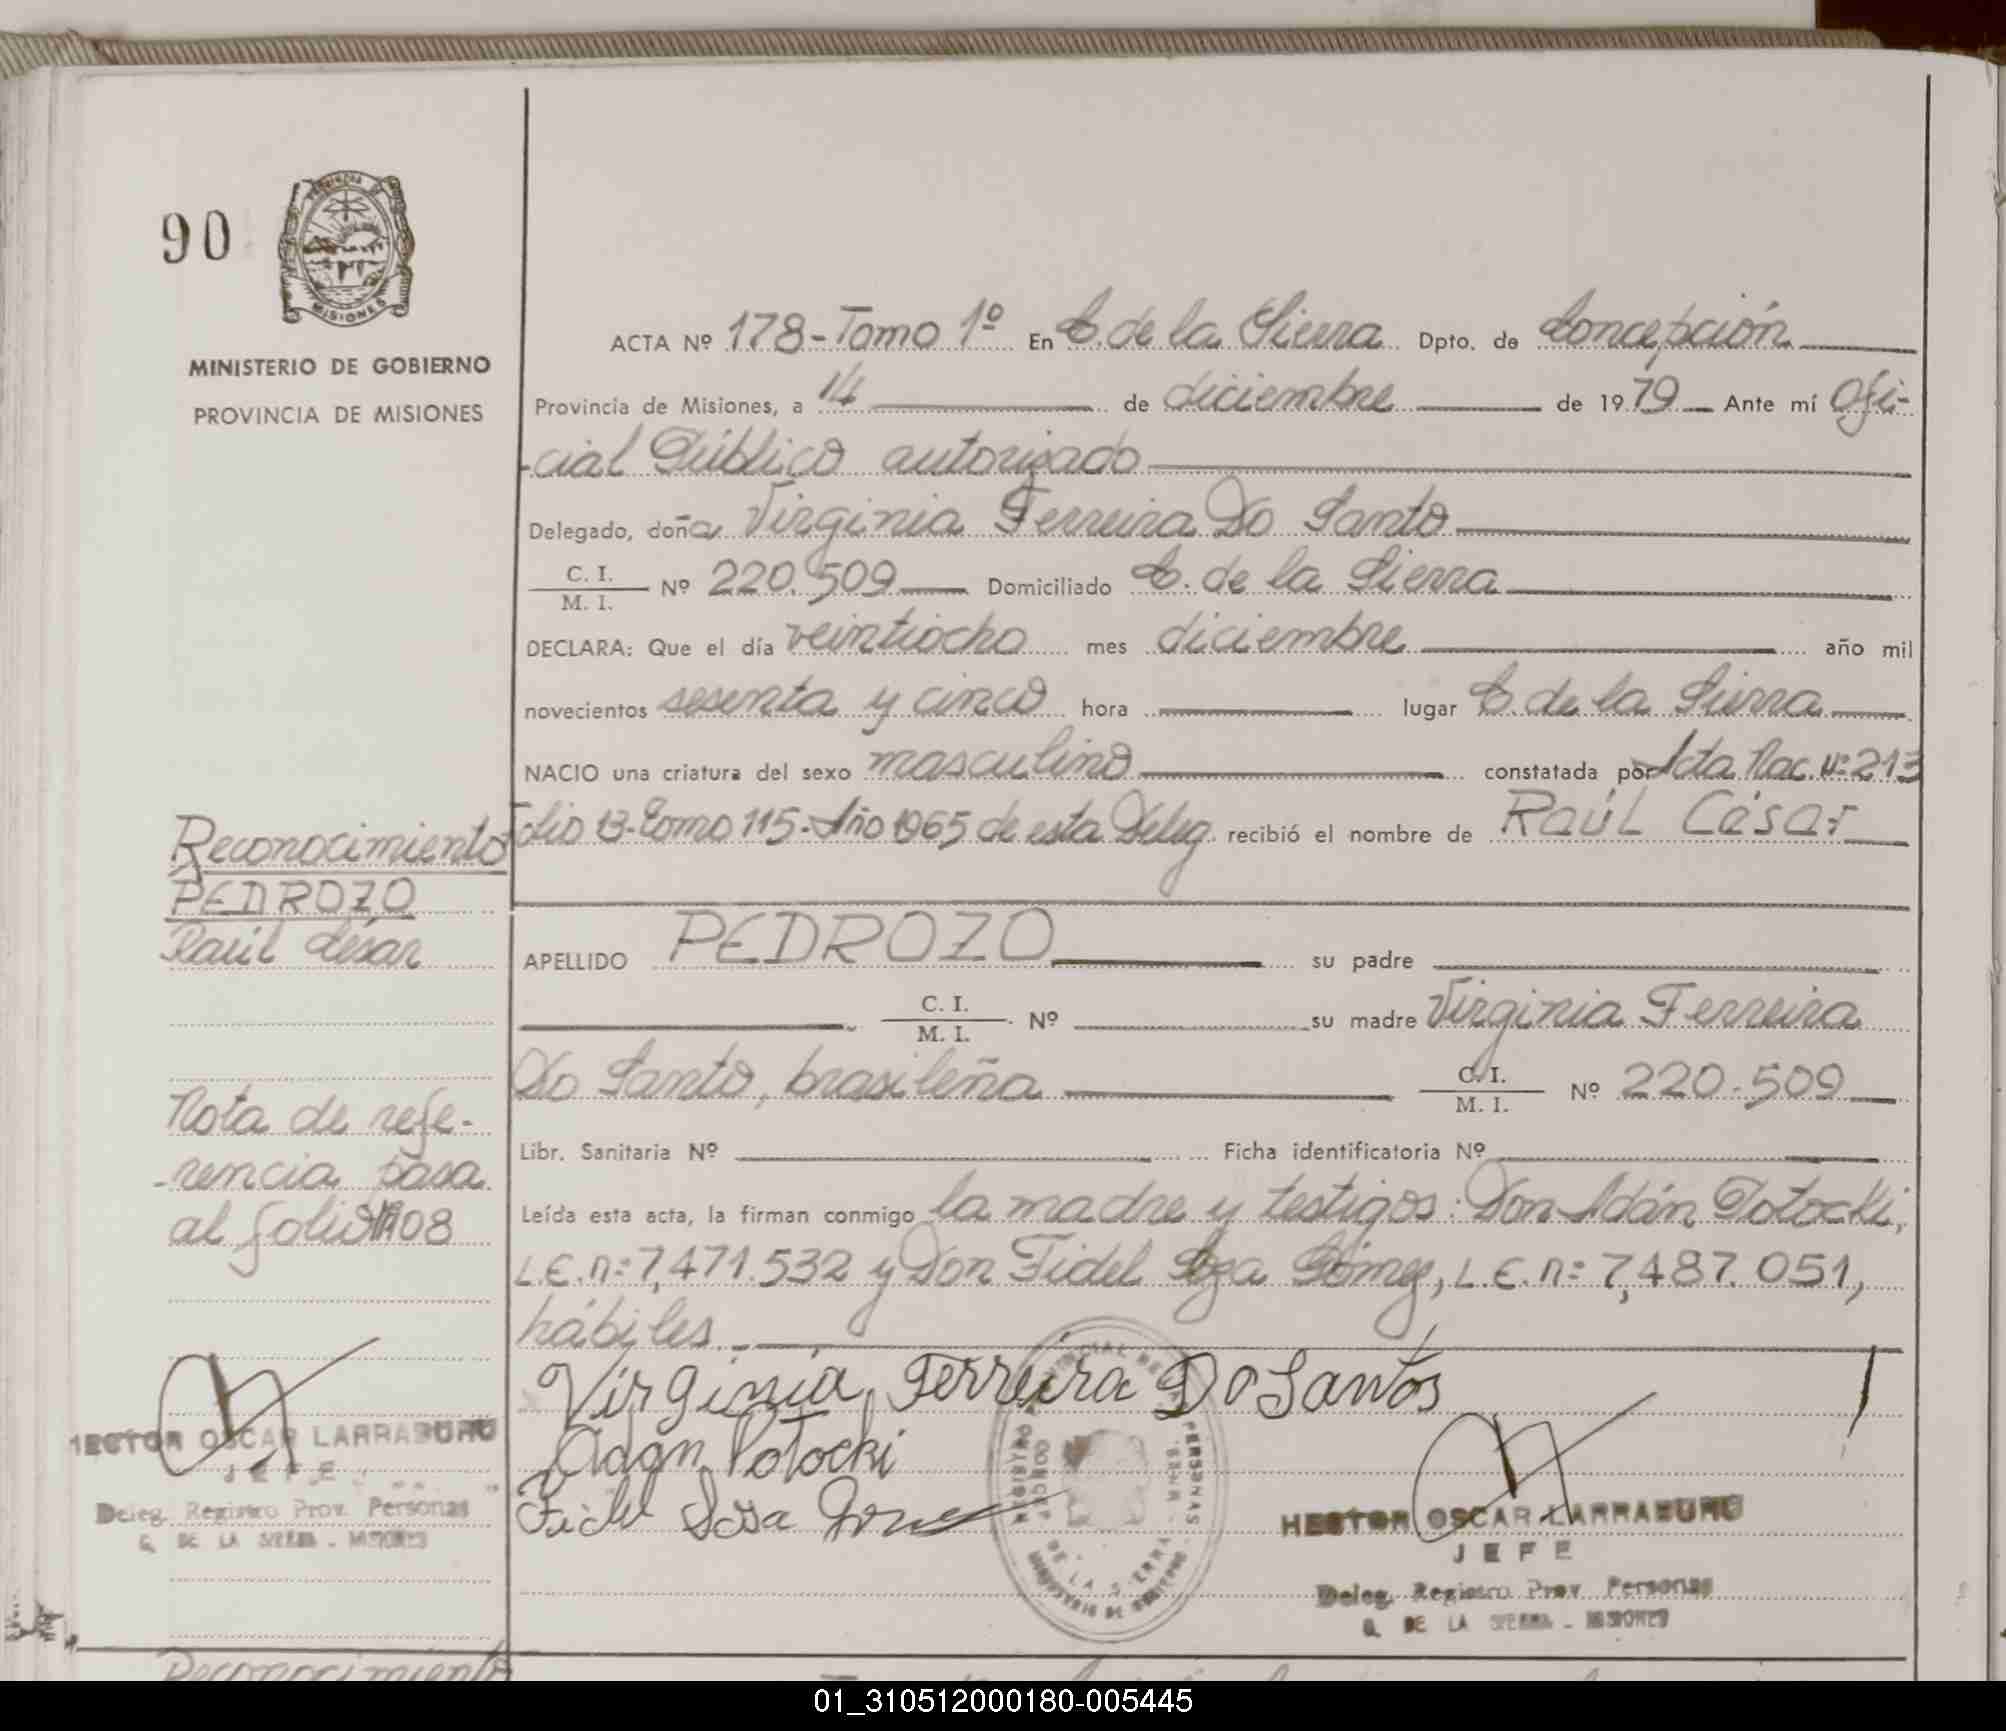 90
PROVINCIA DE
MISIONES
MINISTERIO DE GOBIERNO
PROVINCIA DE MISIONES
ACTA Nº 178-Tomo 1º En C. de la Sierra Dpto. de Concepción
Provincia de Misiones, a 14 de diciembre de 1979 Ante mí Ofi-
-cial Público autorizado
Delegado, doña Virginia Ferreira Do Santo
C. I.
M. I. Nº 220.509 Domiciliado C. de la Sierra
DECLARA: Que el día veintiocho mes diciembre año mil
novecientos sesenta y cinco hora lugar C. de la Sierra
NACIO una criatura del sexo masculino constatada por Acta Nac. nº 213
Folio 13-Tomo 115-Año 1965 de esta Deleg. recibió el nombre de Raúl César
APELLIDO PEDROZO su padre
C. I.
M. I. Nº su madre Virginia Ferreira
Do Santo, brasileña C. I.
M. I. Nº 220.509
Libr. Sanitaria Nº Ficha identificatoria Nº
Leída esta acta, la firman conmigo la madre y testigos: Don Adán Potocki,
L.E.n:7,471.532 y Don Fidel Soza Gómez, L.E.n:7,487.051,
hábiles
Virginia Ferreira Do Santos
Adan Potocki
Fidel Soza Gomez
REGISTRO PROVINCIAL DE LAS PERSONAS
CONCEP. DE LA SIERRA
MINISTERIO DE GOBIERNO
HECTOR OSCAR LARRABURU
JEFE
Deleg. Registro Prov. Personas
C. DE LA SIERRA - MISIONES
Reconocimiento
PEDROZO
Raúl César
Nota de refe-
-rencia pasa
al folio 108
HECTOR OSCAR LARRABURU
JEFE
Deleg. Registro Prov. Personas
C. DE LA SIERRA - MISIONES
Reconocimiento
01_310512000180-005445